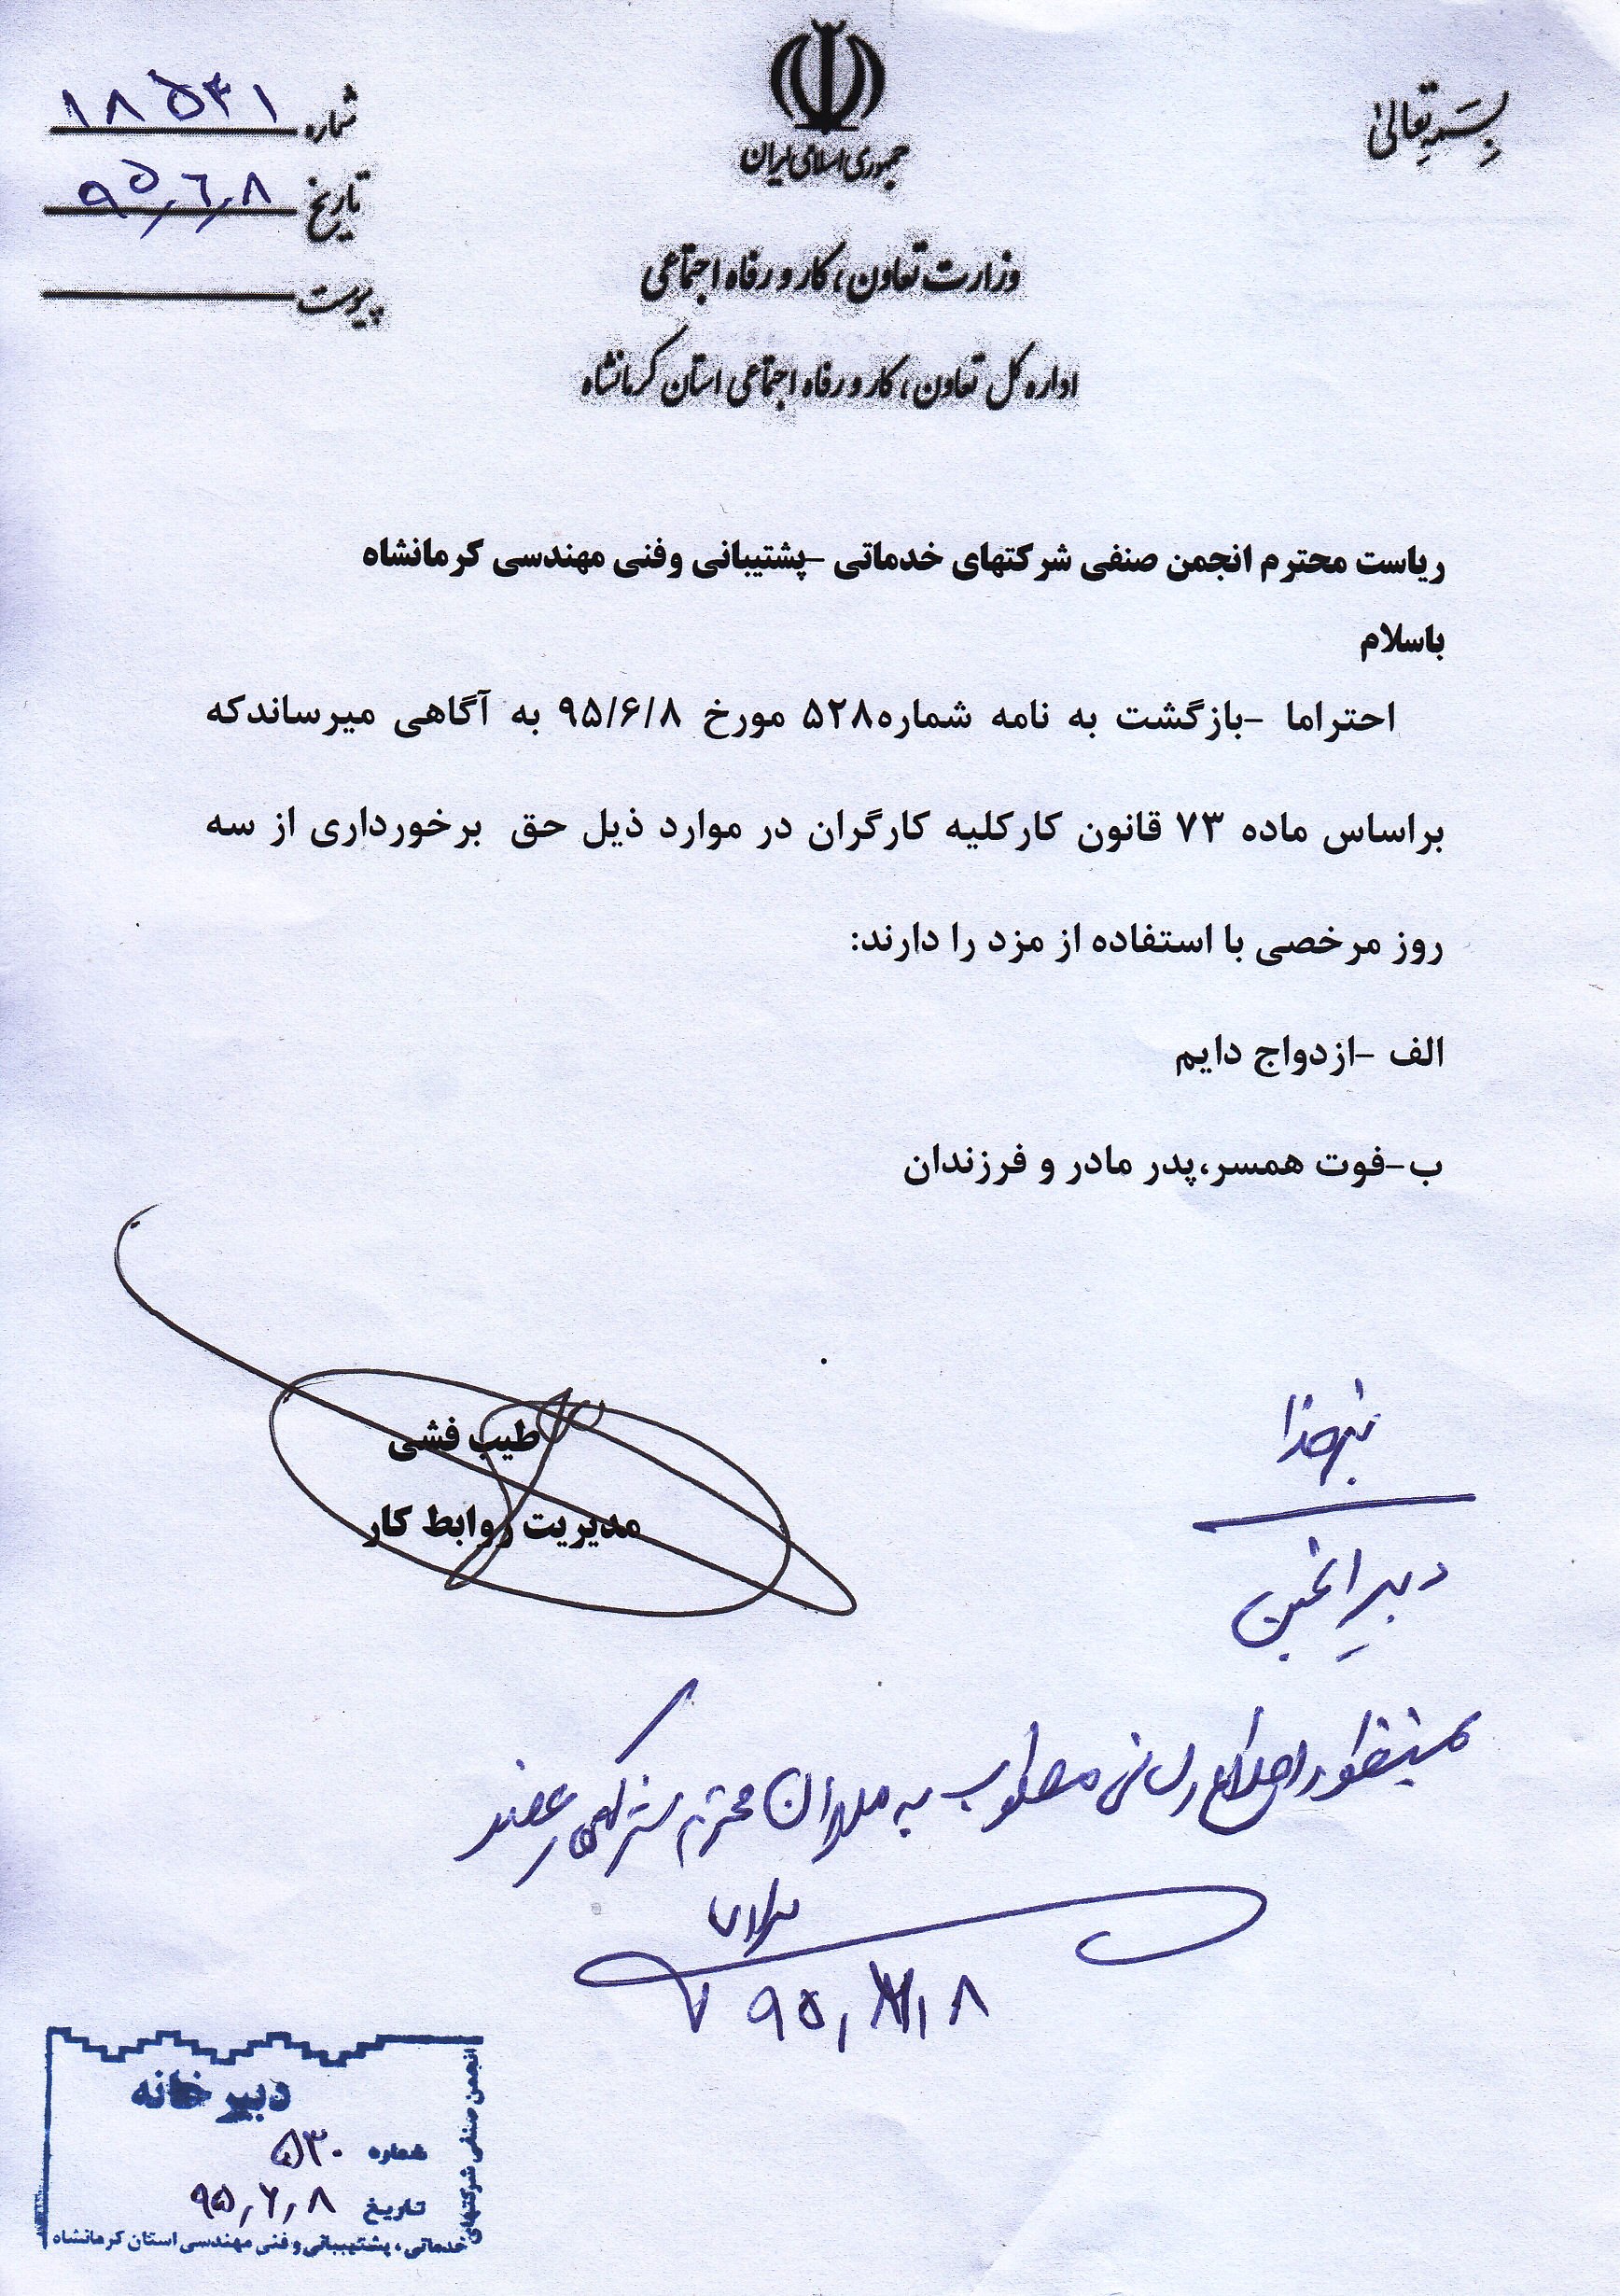 بسمه تعالی
جمهوری اسلامی ایران
وزارت تعاون، کار و رفاه اجتماعی
اداره کل تعاون، کار و رفاه اجتماعی استان کرمانشاه
شماره ۱۸۵۴۱
تاریخ ۹۵٫۶٫۸
پیوست
ریاست محترم انجمن صنفی شرکتهای خدماتی –پشتیبانی وفنی مهندسی کرمانشاه
باسلام
احتراما –بازگشت به نامه شماره۵۲۸ مورخ ۹۵/۶/۸ به آگاهی میرساندکه
براساس ماده ۷۳ قانون کارکلیه کارگران در موارد ذیل حق برخورداری از سه
روز مرخصی با استفاده از مزد را دارند:
الف –ازدواج دایم
ب–فوت همسر،پدر مادر و فرزندان
طیب فشی
مدیریت روابط کار
بنام خدا
دبیر انجمن
بمنظور اطلاع رسانی مطلوب به مدیران محترم شرکتهای عضو
۹۵٫۶٫۸
دبیر خانه
شماره ۵۳۰
تاریخ ۹۵٫۶٫۸
انجمن صنفی شرکتهای
خدماتی ، پشتیبانی و فنی مهندسی استان کرمانشاه